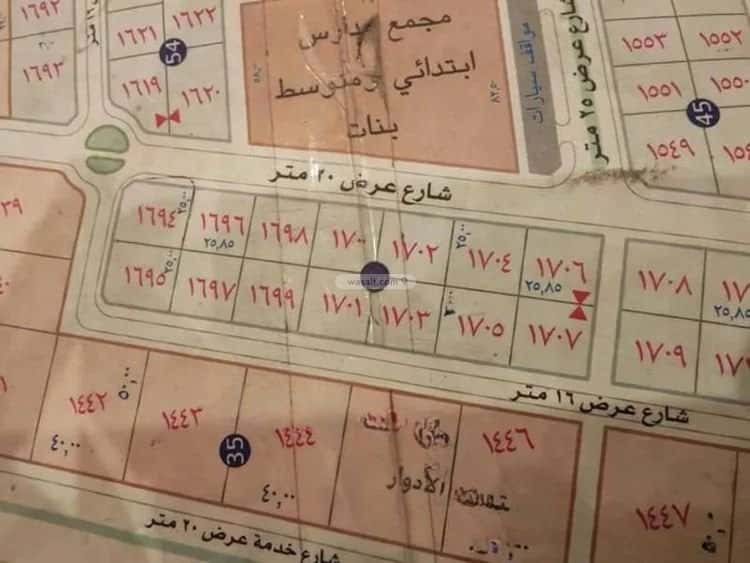 ١٦٩٢
١٦٩٣
١٦٢١
١٦٢٢
54
١٦١٩
١٦٢٠
مجمع مدارس
ابتدائي ومتوسط
بنات
مواقف سيارات
شارع عرض ٢٥ متر
١٥٥٣
١٥٥٢
١٥٥١
45
١٥٤٩
شارع عرض ٢٠ متر
١٦٩٤
٢٥,٠٠
١٦٩٦
25,85
١٦٩٨
١٧٠٠
١٧٠٢
٢٥,٠٠
١٧٠٤
١٧٠٦
25,85
١٧٠٨
25,85
١٦٩٥
٢٥,٠٠
١٦٩٧
١٦٩٩
١٧٠١
١٧٠٣
١٧٠٥
١٧٠٧
١٧٠٩
wasalt.com
شارع عرض ١٦ متر
١٤٤٢
٥٠,٠٠
٤٠,٠٠
١٤٤٣
35
١٤٤٤
٤٠,٠٠
الأدوار
١٤٤٦
١٤٤٧
شارع خدمة عرض ٢٠ متر